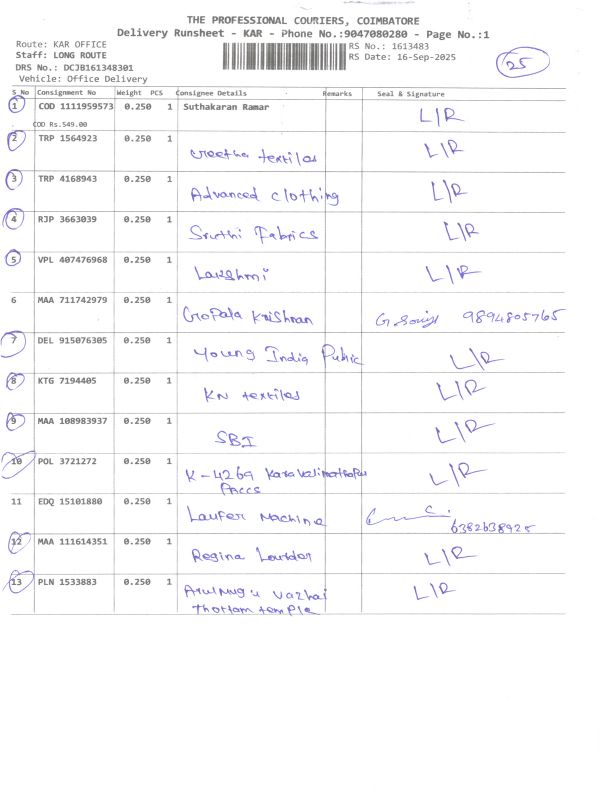 THE PROFESSIONAL COURIERS, COIMBATORE
Delivery Runsheet - KAR - Phone No.:9047080280 - Page No.:1
Route: KAR OFFICE RS No.: 1613483
Staff: LONG ROUTE RS Date: 16-Sep-2025
25
DRS No.: DCJB161348301
Vehicle: Office Delivery
S_No Consignment No Weight PCS Consignee Details Remarks Seal & Signature
1 COD 1111959573 0.250 1 Suthakaran Ramar L/R
COD Rs.549.00
2 TRP 1564923 0.250 1 Geetha textiles L/R
3 TRP 4168943 0.250 1 Advanced clothing L/R
4 RJP 3663039 0.250 1 Sruthi Fabrics L/R
5 VPL 407476968 0.250 1 Lakshmi L/R
6 MAA 711742979 0.250 1 Gopala Krishnan 9894805765
7 DEL 915076305 0.250 1 Young India Public L/R
8 KTG 7194405 0.250 1 KN textiles L/R
9 MAA 108983937 0.250 1 SBI L/R
10 POL 3721272 0.250 1 K-4269 L/R
PACCS
11 EDQ 15101880 0.250 1 Laufer Machine 6382638925
12 MAA 111614351 0.250 1 Regina Lourder L/R
13 PLN 1533883 0.250 1 Arulmugu Vazhai L/R
Thottam temple